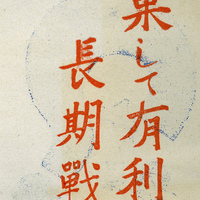 果して有利
長期戰